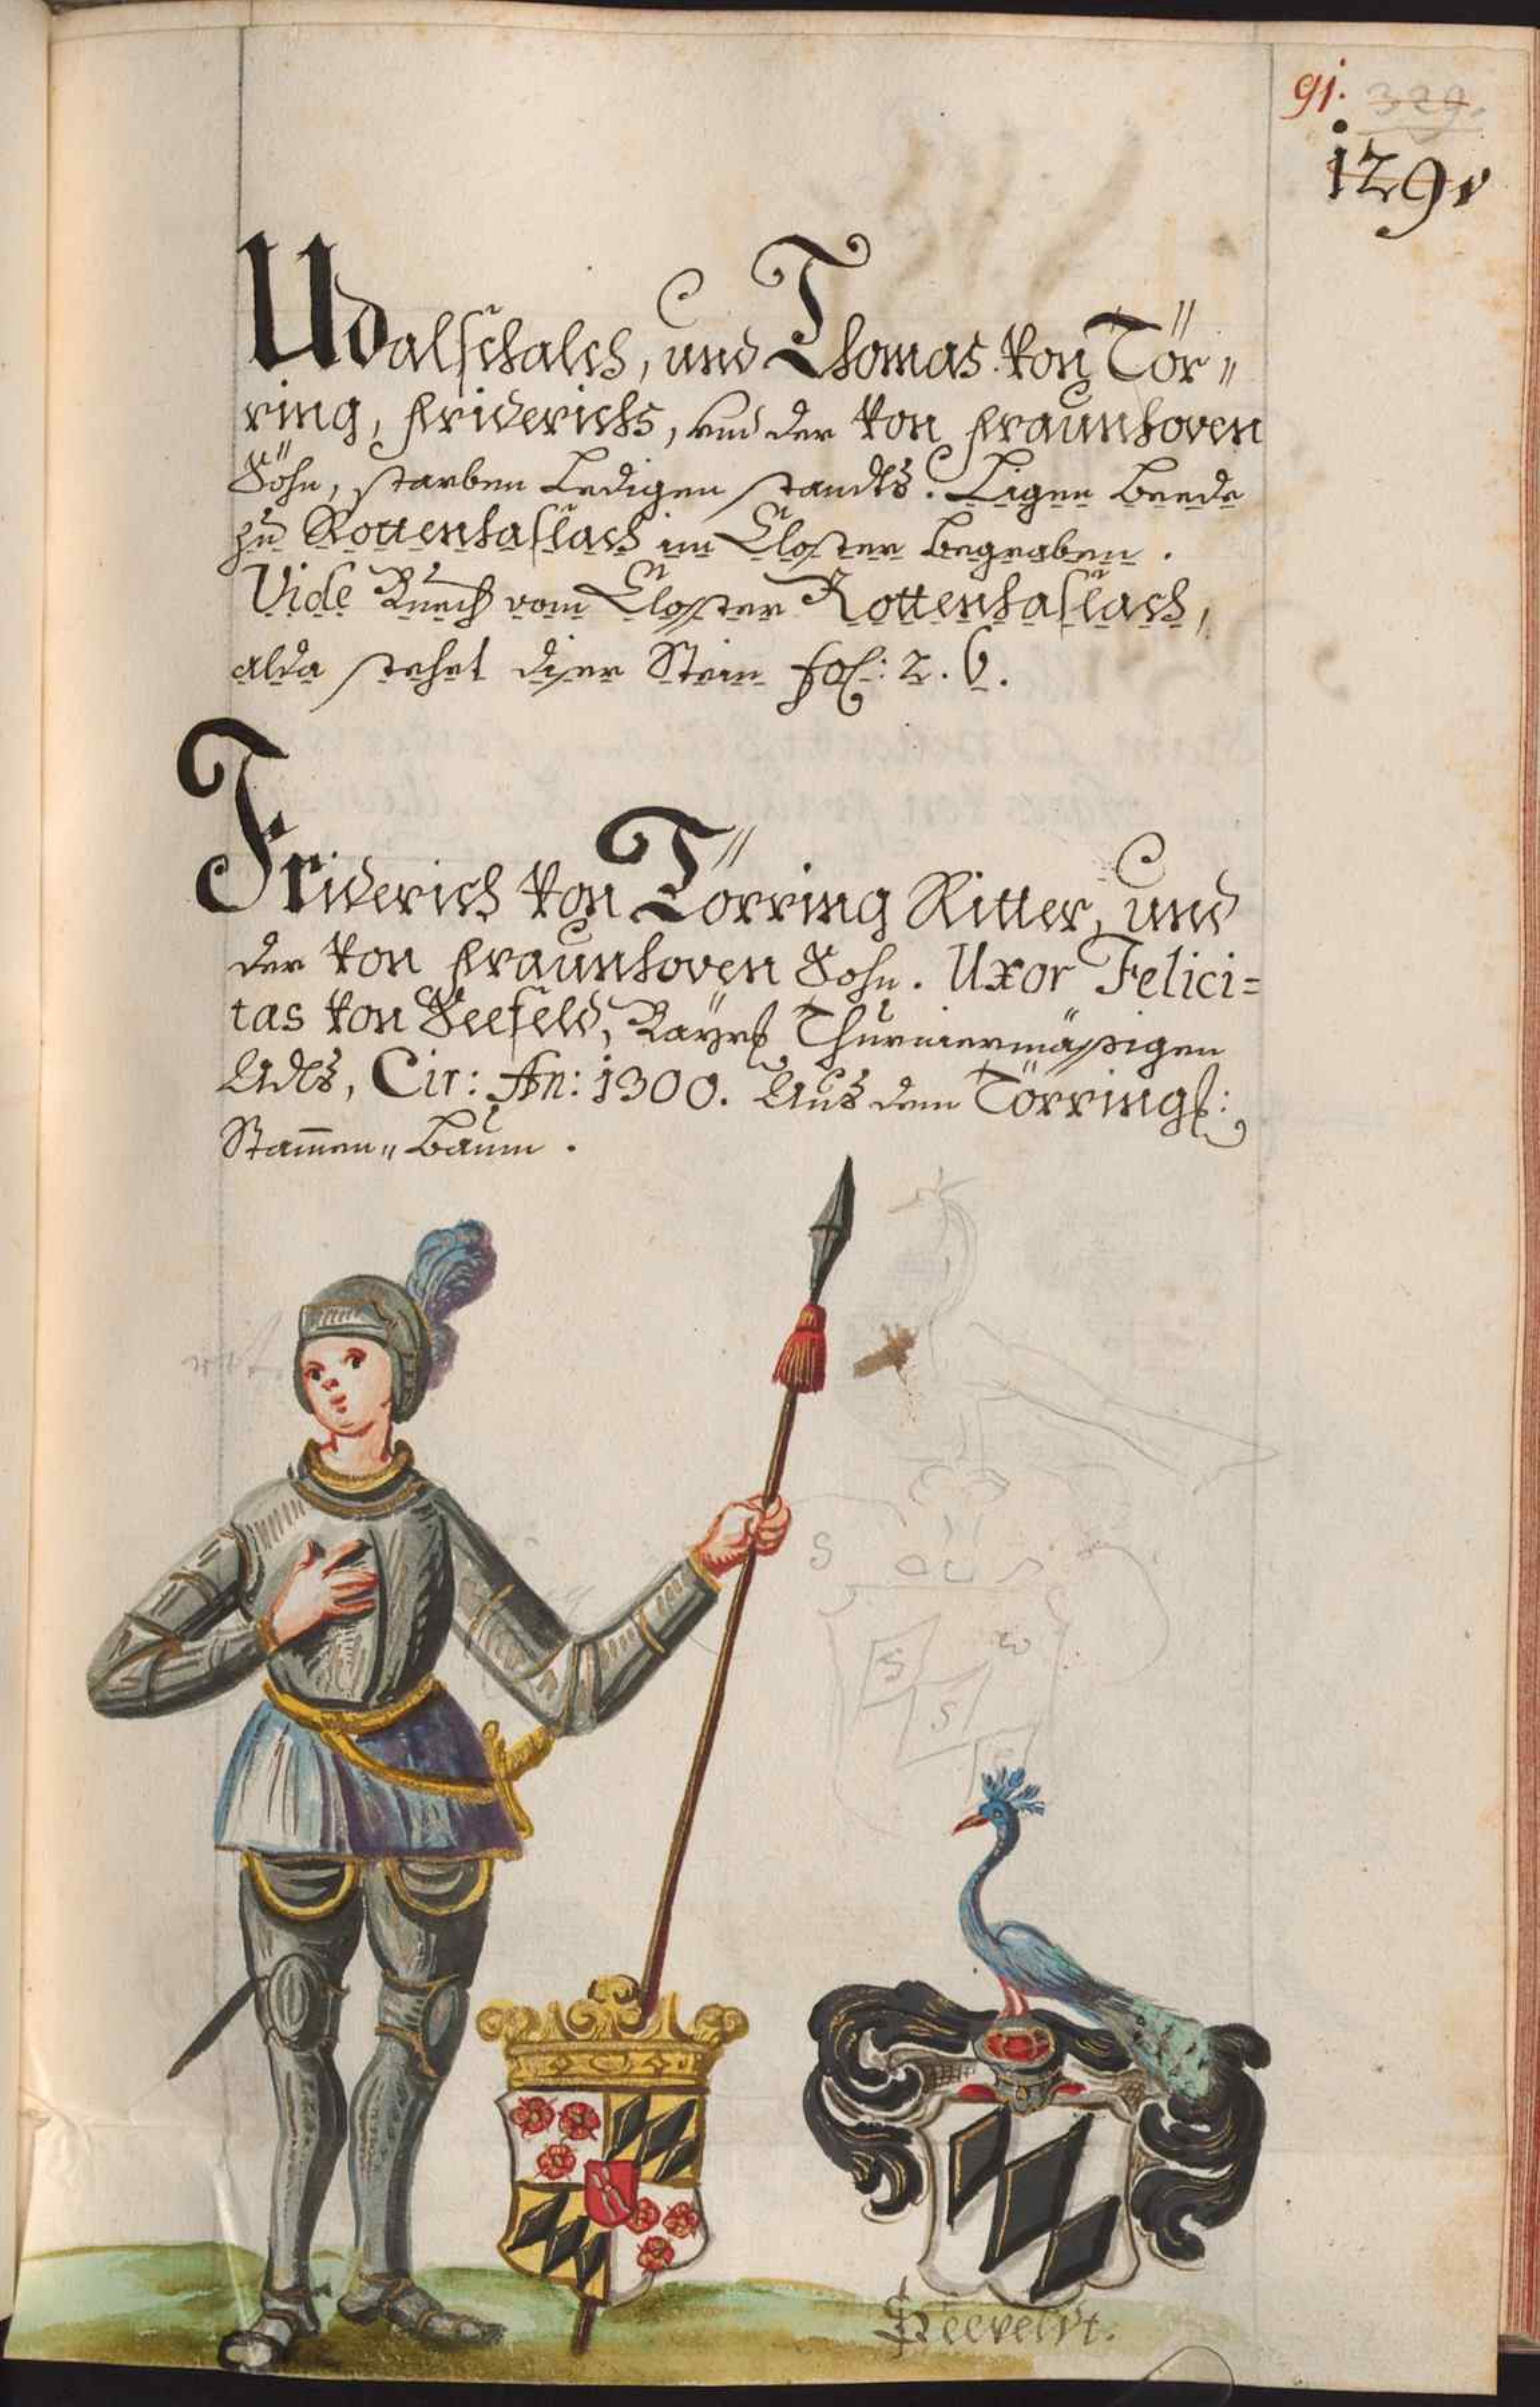 91. 329.
129v
Udalschalch, und Thomas von Tör„
ring, Friderichs, und der von Fraunhoven
Söhn, starben Ledigen standts. Ligen beede
zu Rottenhaslach im Closter begraben.
Vide Buech vom Closter Rottenhaslach,
alda stehet diser Stein fol: 2. 6.
Friderich von Törring Ritter, und
der von Fraunhoven Sohn. Uxor Felici=
tas von Seefeld, Bayrs Thurniermässigen
Adls, Cir: An: 1300. Aus dem Törrings:
Stam̄en„Baum.
S
w
S
S
Seeveldt.